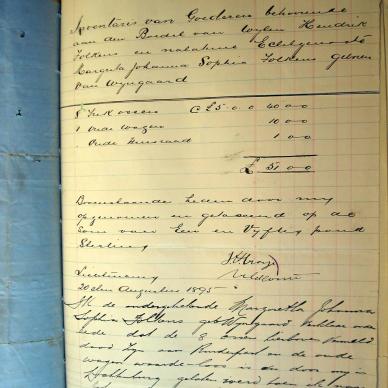 Inventaris van Goederen behoorende
aan den Boedel van wylen Hendrik
Folkens en nalatene Echtgenoote
Margreta Johanna Sophia Folkens geboren
van Wyngaard
8 Trek ossen @ £5.0.0 40 0 0
1 oude wagen 10 0 0
Oude Huisraad 1 0 0
£ 51 0 0
Bovenstaande heden door my
opgenomen en getaxeerd op de
som van Een en Vyftig pond
Sterling
Veldcornet
20 den Augustus 1895
Ik de ondergetekende Margretha Johanna
Sophia Folkens geb Wyngaard verklaar
dat de 8 ossen hierboven vermeld
door zyn aan Runderpest en de oude
wagen waardeloos is en door my in